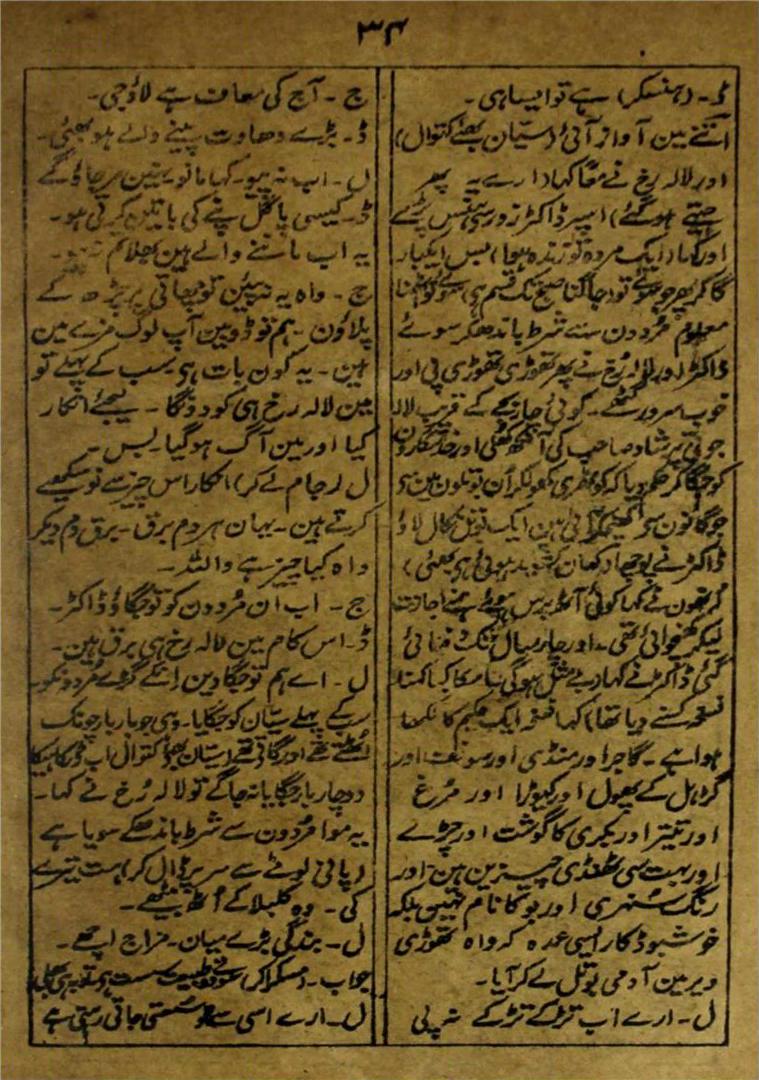 ۳۴
ڈ۔ (ہنسکر) ہے تو ایسا ہی۔
اتنے مین آواز آئی (سیّان بھئے کتوال)
اور لالہ رخ نے معًا کہا (ارے یہ پھر
جیتے ہوگئے) اسپر ڈاکٹر زور سے ہنس پڑے
اور کہا (ایک مردہ تو زندہ ہوا) بس ایکبار
گا کر پھر جو سوئے تو جاگنا صبح تک قسم ہی
معلوم مُردون سے شرط باندھکر سوئے
ڈاکٹر اور لالہ رُخ نے پھر تھوڑی تھوڑی پی اور
خوب سرور گٹھے۔ کوئی چار بجے کے قریب لالہ
جوتی پرشاد صاحب کی آنکھ کھلی اور خدمتگارون
کو جگا کر حکم دیا کہ کوٹھری کھولکر اُن بوتلون مین سے
جو گانون سے کھینچکر آئی ہین ایک بوتل نکال لاؤ
ڈاکٹر نے پوچھا (کہان کشید ہوئی ہی بھئی)
اُنھون نے کہا کوئی آٹھ برس ہوئے ہمنے اجازت
لیکر کھنچوائی تھی۔ اور چار سال تک دفنائی
گئی ڈاکٹر نے کہا (بے مثل ہوگی
نسخہ کسنے دیا تھا) کہا نسخہ ایک حکیم کا لکھا
ہوا ہے۔ گاجر اور منڈی اور سونف اور
گڑہل کے پھول اور کیوڑا اور مُرغ
اور تیتر اور بکری کا گوشت اور چڑے
اور بہت سی ٹھنڈی چیزین ہین۔ اور
رنگ سنہری اور بو کا نام نہین بلکہ
خوشبو ڈکار ایسی عمدہ کہ واہ تھوڑی
دیر مین آدمی بوتل لے کر آیا۔
ل۔ ارے اب تڑکے تڑکے نہ پی
ج۔ آج کی معاف ہے لاؤ جی۔
ڈ۔ بڑے دھاوت پینے والے ہو بھئی۔
ل۔ اب نہ پیو۔ کہا مانو۔ نہین مرجاؤگے
ڈ۔ کیسی پاگل پنے کی باتین کرتی ہو۔
یہ اب ماننے والے ہین بھلا تم
ج۔ واہ یہ نہ پئین تو چھاتی پر چڑھ کے
پلاؤن۔ ہم تو ڈوبین آپ لوگ مزے مین
ہین۔ یہ کون بات ہی سب کے پہلے تو
مین لالہ رخ ہی کو دونگا۔ لیجئے انکار
کیا اور مین آگ ہوگیا۔ بس۔
ل (جام لے کر) انکار اس چیز سے
کرتے ہین۔ یہان ہردم برق۔ برق دم دیکر
واہ کیا چیز ہے واللہ۔
ج۔ اب ان مُردون کو تو جگاؤ ڈاکٹر۔
ڈ۔ اس کام مین لالہ رخ ہی برق ہین۔
ل۔ اے ہم تو جگا دین گڑے مُردونکو۔
سبکے پہلے سیّان کو جگایا۔ وہی جو بار بار چونک
اُٹھتے تھے اور گاتے تھے (سیّان بھئے کتوال اب ڈر کاہیکا
دو چار بار جگایا نہ جاگے تو لالہ رُخ نے کہا۔
یہ موا مُردون سے شرط باندھکے سویا ہے
(پانی لوٹے سے سر پر ڈال کر) ہت تیرے
کی۔ وہ کلبلا کے اُٹھ بیٹھے۔
ل۔ بندگی بڑے میان۔ مزاج اچھے۔
جواب۔ (مسکرا کر) طبیعت سست
ل۔ ارے اسی سے تو سُستی جاتی رہتی ہے